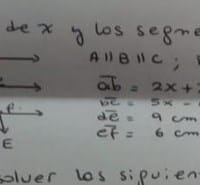 de x y los segme
A II B II C ;
ab = 2x +
bc = 5x -
de = 9 cm
P
ef = 6 cm
E
solver los siguien